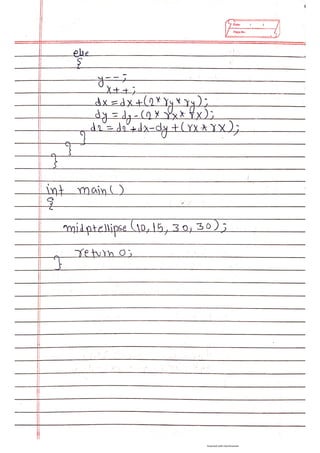 Date : / /
Page No.
else
{
y--;
x++;
dx = dx + (2 * ry * ry);
dy = dy - (2 * rx * rx);
d2 = d2 + dx - dy + (rx * rx);
}
}
}
int main()
{
midptellipse (10, 15, 30, 30);
return 0;
}
Scanned with CamScanner